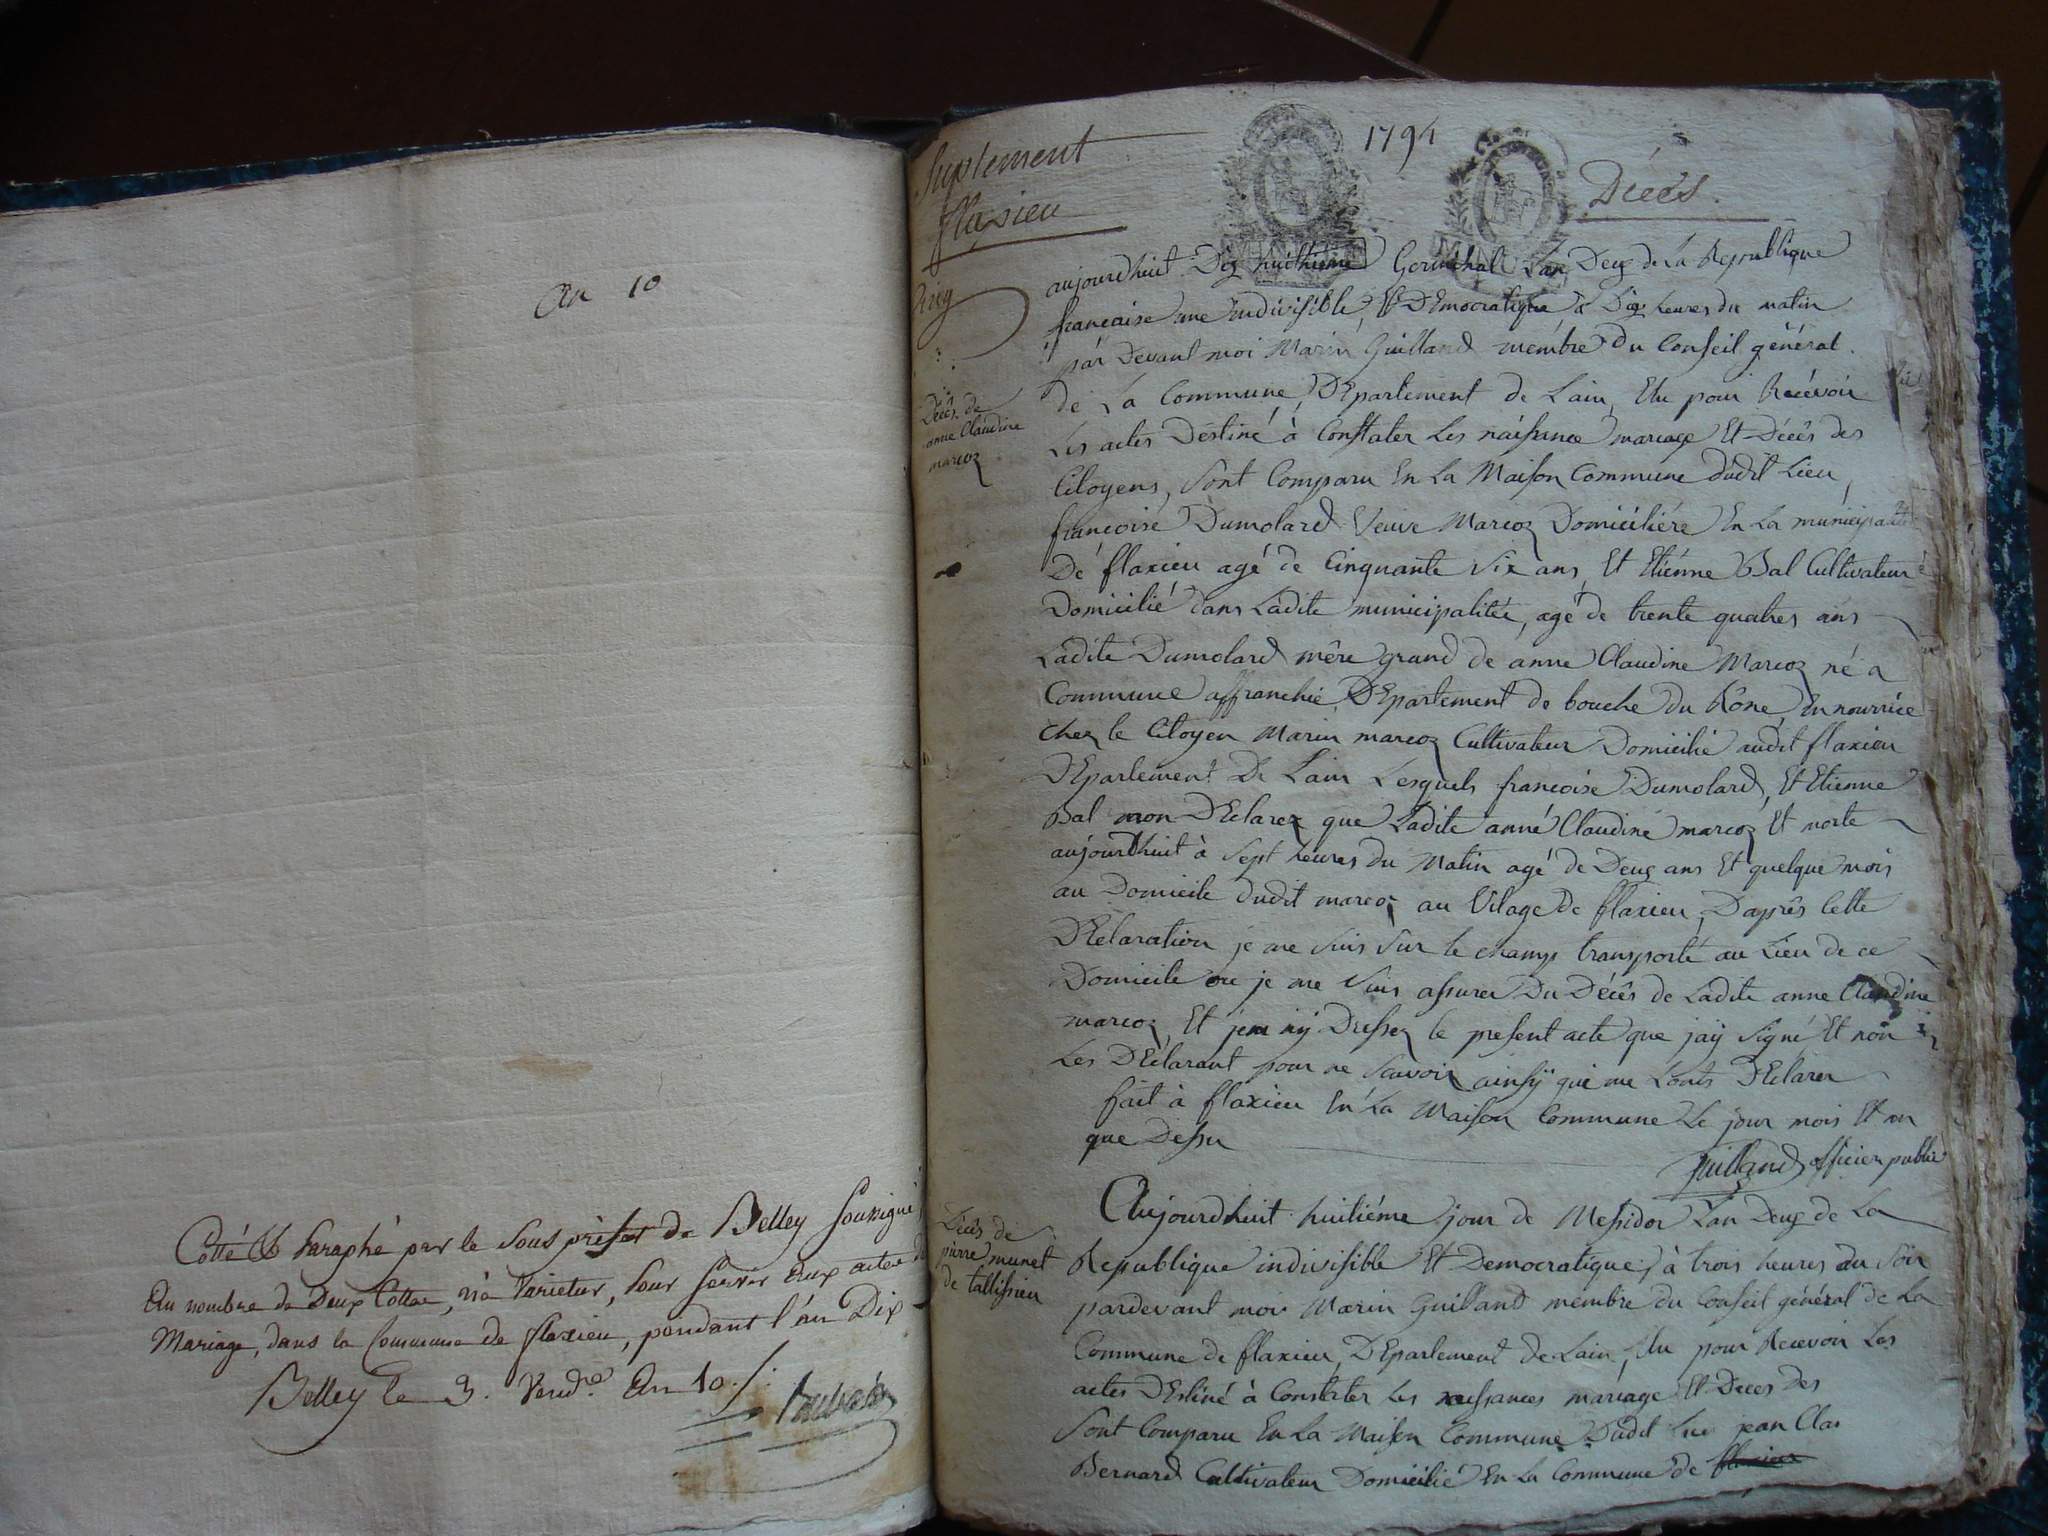 An 10
Cotté & Paraphé par le Sous préfet de Belley Soussigné
Au nombre de Deux Cottes, né Varietur, Pour Servir aux actes de
Mariage, dans la Commune de flaxieu, pendant l'an Dix
Belley le 3. Vendre. An 10 /.
Suplement
flaxieu
1794
Décés.
aujourdhuit Dix huithieme Germinal Lan Deux de La Republique
francaise une indivisible, Et DEmocratique a Dix heures du matin
par Devant moi Marin Guilland membre du Conseil général
de La Commune, DEpartement de Lain, Elu pour Recevoir
Les actes Destiné à Constater Les naissance mariage Et Décés des
Citoyens, Sont Comparu En La Maison Commune dudit Lieu,
françoise Dumolard Veuve Marcoz Domiciliére En La municipalité
De flaxieu agé de Cinquante Six ans, Et Etiénne Bal Cultivateur
Domicilié dans Ladite municipalitée, agé de trente quatres ans
Ladite Dumolard mère grand de anne Claudine Marcoz né a
Commune affranchie DEpartement de bouche du Rône, En nourrice
chez le Citoyen Marin marcoz Cultivateur Domicilié audit flaxieu
DEpartement De Lain Lesquels francoise Dumolard, Et Etienne
Bal mon DEclarez que Ladite anne Claudine marcoz Et morte
aujourdhuit à Sept heures du Matin agé de Deux ans Et quelque mois
au Domicile dudit marcoz au Vilage de flaxieu, Daprês Cette
DEclaration je me Suis Sur le champ transporté au Lieu de ce
Domicile ou je me Suis assurer Du Décês de Ladite anne Claudine
marcoz, Et jen ny Dressez le present acte que jaÿ Signé Et non
Les DEclarant pour ne Scavoir ainsÿ qui me Lonts DEclarer
fait à flaxieu En La Maison Commune Le jour mois Et an
que Dessu
Guilland officier public
Décês de
anne Claudine
marcoz
Aujourdhuit huitiéme jour de Messidor Lan Deux de La
Republique indivisible Et Democratique, à trois heures du Soir
pardevant moi Marin Guilland membre du Conseil général de La
Commune de flaxieu, DEpartement de Lain, Elu pour Recevoir Les
actes DEstiné à Constater Les naissances mariage Et Deces des
Sont Comparu En La Maison Commune Dudit Lieu jean Clau
Bernard Cultivateur Domicilié En La Commune de flaxieu
Décês de
pierre munet
de tallissieu